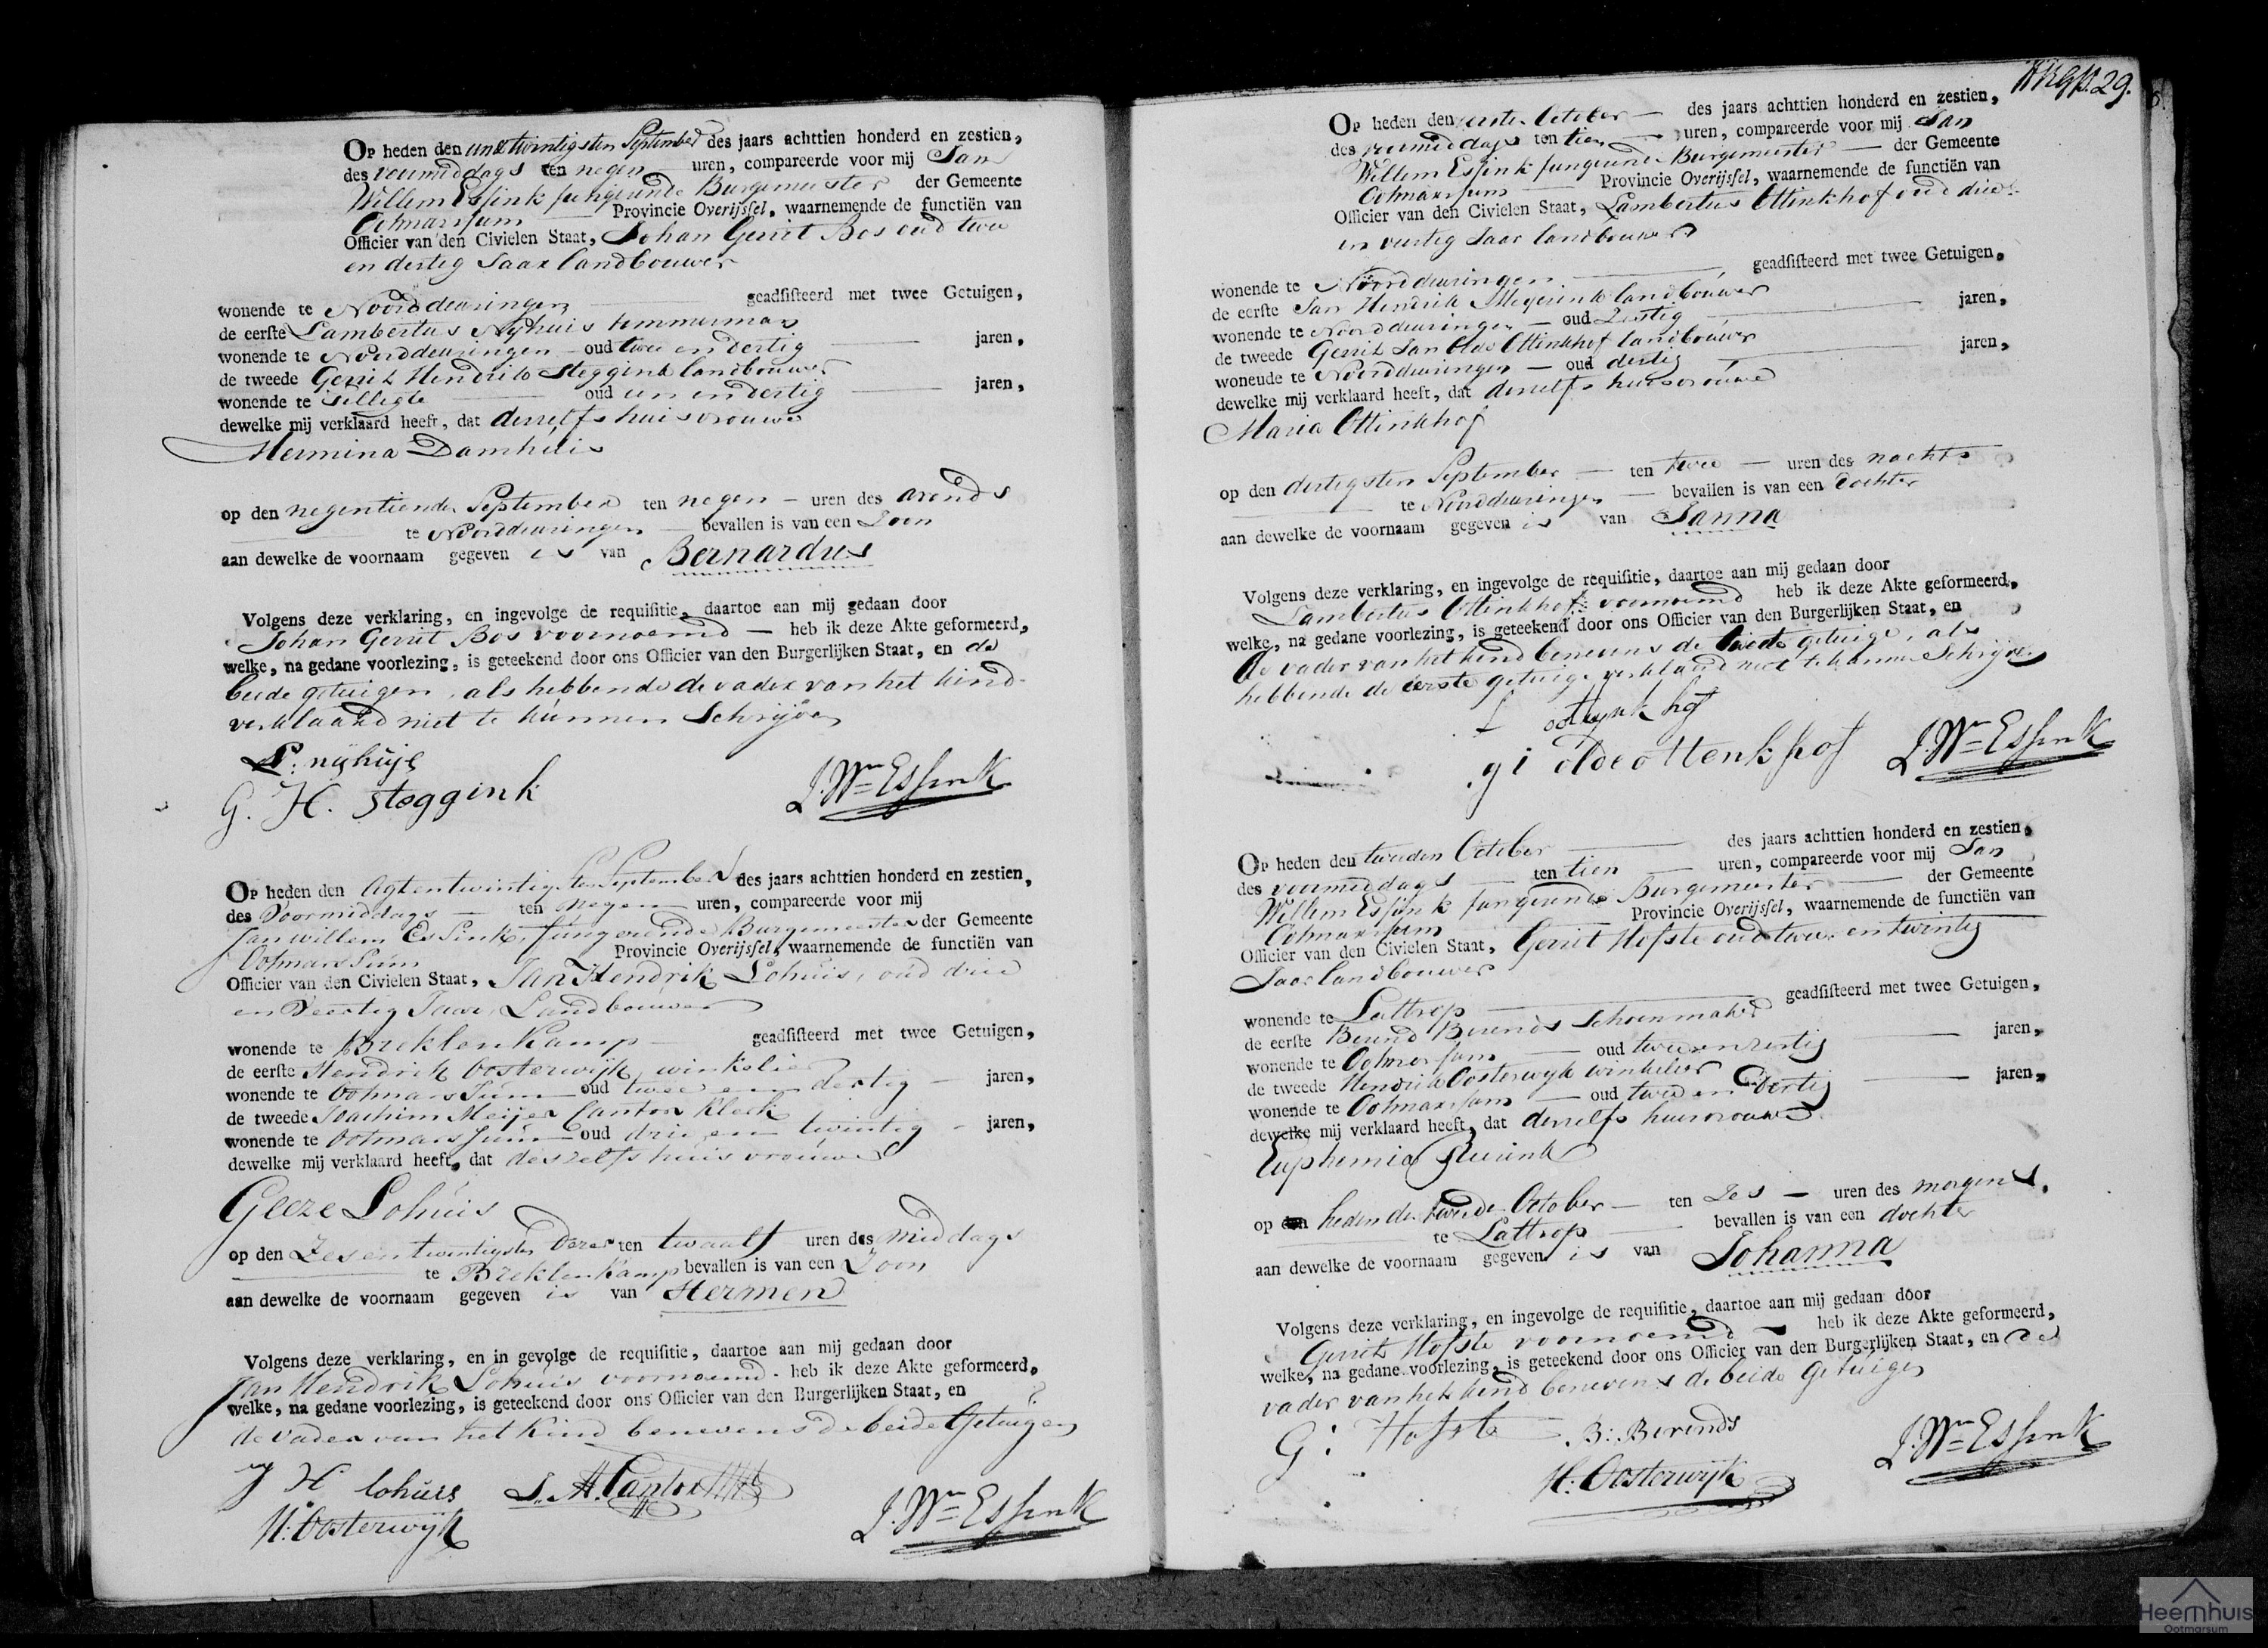 Op heden den een & twintigsten September des jaars achttien honderd en zestien,
des voormiddags ten negen uren, compareerde voor mij Jan
Willem Essink fungerende Burgemeester der Gemeente
Ootmarssum Provincie Overijssel, waarnemende de functiën van
Officier van den Civielen Staat, Johan Gerrit Bos oud twee
en dertig Jaar landbouwer
wonende te Noorddeuringen geadsisteerd met twee Getuigen,
de eerste Lambertus Nyhuis timmerman
wonende te Noorddeuringen oud twee en dertig jaren,
de tweede Gerrit Hendrik Steggink landbouwer
wonende te Tilligte oud een en dertig jaren,
dewelke mij verklaard heeft, dat deszelfs huisvrouwe
Hermina Damhuis
op den negentiende September ten negen uren des avonds
te Noorddeuringen bevallen is van een Zoon
aan dewelke de voornaam gegeven is van Bernardus
Volgens deze verklaring, en ingevolge de requisitie, daartoe aan mij gedaan door
Johan Gerrit Bos voornoemd heb ik deze Akte geformeerd,
welke, na gedane voorlezing, is geteekend door ons Officier van den Burgerlijken Staat, en de
beide getuigen, als hebbende de vader van het kind
verklaard niet te kunnen Schrijven
L: nyhuys
G. H. steggink J. Wm Essink
Op heden den Agtentwintigsten September des jaars achttien honderd en zestien,
des Voormiddags ten negen uren, compareerde voor mij
Jan willem Essink, fungerende Burgemeester der Gemeente
Ootmarssum Provincie Overijssel, waarnemende de functiën van
Officier van den Civielen Staat, Jan Hendrik Lohuis, oud drie
en Veertig Jaar, Landbouwer
wonende te Breklenkamp geadsisteerd met twee Getuigen,
de eerste Hendrik Oosterwijk winkelier
wonende te Ootmarssum oud twee en dertig jaren,
de tweede Joachim Meijer Cantor Klerk
wonende te Ootmarssum oud drie en twintig jaren,
dewelke mij verklaard heeft, dat deszelfs huisvrouwe
Geeze Lohuis
op den Zesentwintigsten dezer ten twaalf uren des middags
te Breklenkamp bevallen is van een Zoon
aan dewelke de voornaam gegeven is van Hermen
Volgens deze verklaring, en in gevolge de requisitie, daartoe aan mij gedaan door
Jan Hendrik Lohuis voornoemd. heb ik deze Akte geformeerd,
welke, na gedane voorlezing, is geteekend door ons Officier van den Burgerlijken Staat, en
de Vader van het Kind benevens de beide Getuigen
J H lohuis J. M. Cantor
H: Oosterwijk J. Wm Essink
29.
Op heden den eersten October des jaars achttien honderd en zestien,
des voormiddags ten tien uren, compareerde voor mij Jan
Willem Essink fungerende Burgemeester der Gemeente
Ootmarssum Provincie Overijssel, waarnemende de functiën van
Officier van den Civielen Staat, Lambertus Ottinkhof oud drie
en veertig Jaar landbouwer
wonende te Noorddeuringen geadsisteerd met twee Getuigen,
de eerste Jan Hendrik Megerink landbouwer
wonende te Noorddeuringen oud Zestig jaren,
de tweede Gerrit Jan Olde Ottinkhof landbouwer
wonende te Noorddeuringen oud dertig jaren,
dewelke mij verklaard heeft, dat deszelfs huisvrouwe
Maria Ottinkhof
op den dertigsten September ten twee uren des nachts
te Noorddeuringen bevallen is van een dochter
aan dewelke de voornaam gegeven is van Janna
Volgens deze verklaring, en ingevolge de requisitie, daartoe aan mij gedaan door
Lambertus Ottinkhof voornoemd heb ik deze Akte geformeerd,
welke, na gedane voorlezing, is geteekend door ons Officier van den Burgerlijken Staat, en
de vader van het kind benevens de tweede getuige, als
hebbende de eerste getuige verklaard niet te kunnen Schrijven
ottynk hof
g i olde ottenkhof J. Wm Essink
Op heden den tweeden October des jaars achttien honderd en zestien,
des voormiddags ten tien uren, compareerde voor mij Jan
Willem Essink fungerende Burgemeester der Gemeente
Ootmarssum Provincie Overijssel, waarnemende de functiën van
Officier van den Civielen Staat, Gerrit Hofste oud twee en twintig
Jaar landbouwer
wonende te Lattrop geadsisteerd met twee Getuigen,
de eerste Berend Berends Schoenmaker
wonende te Ootmarssum oud jaren,
de tweede Hendrik Oosterwyk winkelier
wonende te Ootmarssum oud twee en dertig jaren,
dewelke mij verklaard heeft, dat deszelfs huisvrouwe
Euphemia
op heden de tweede October ten Zes uren des morgens,
te Lattrop bevallen is van een dochter
aan dewelke de voornaam gegeven is van Johanna
Volgens deze verklaring, en ingevolge de requisitie, daartoe aan mij gedaan door
Gerrit Hofste voornoemd heb ik deze Akte geformeerd,
welke, na gedane voorlezing, is geteekend door ons Officier van den Burgerlijken Staat, en de
vader van het kind benevens de beide getuigen
G: Hofste B: Berends
H: Oosterwijk J. Wm Essink
Heemhuis
Ootmarsum